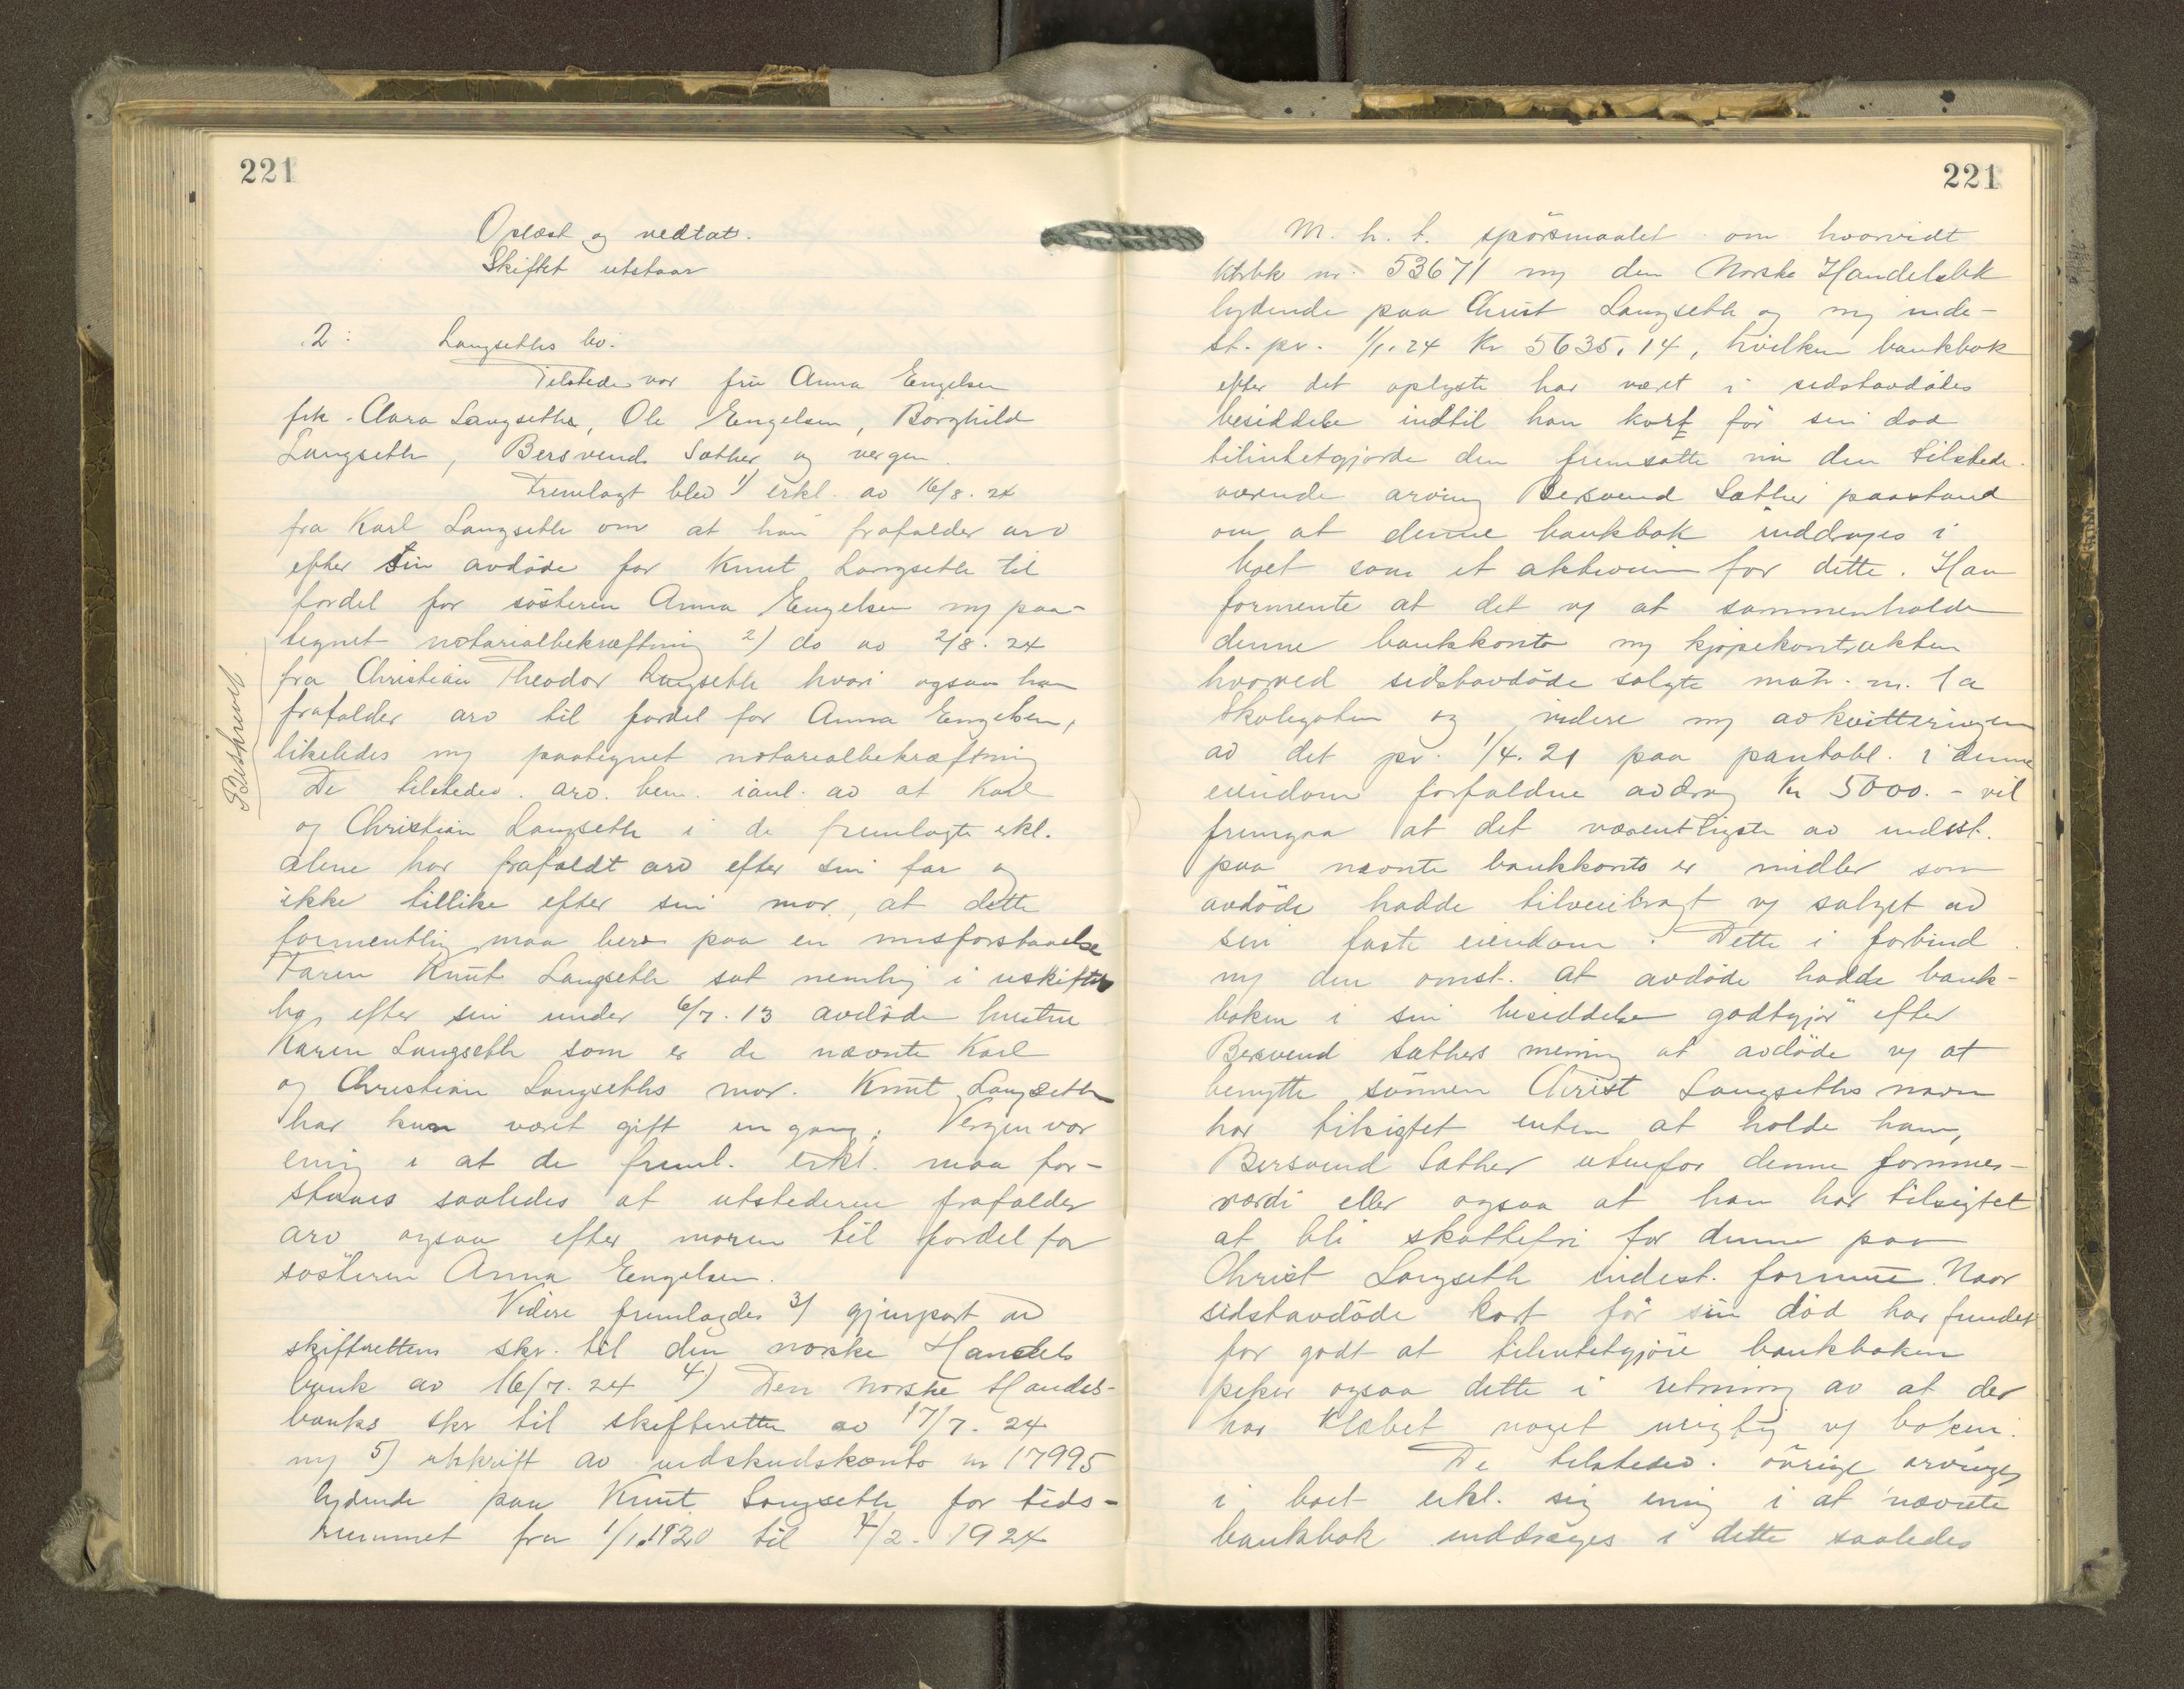 221
Oplæst og vedtat.
Skiftet utstaar
2: Langseths bo.
Tilstede var fru Anna Engelsen
frk. Clara Langseth, Ole Engelsen, Borghild
Langseth, Bersvend Sæther og vergen.
Fremlagt blev 1) erkl. av 16/8. 24
fra Karl Langseth om at han frafalder arv
efter sin avdöde far Knut Langseth til
fordel for sösteren Anna Engelsen m/ paa-
tegnet notarialbekræftning 2) do av 2/8. 24
fra Christian Theodor Langseth hvori ogsaa han
frafalder arv til fordel for Anna Engelsen,
likeledes m/ paategnet notarialbekræftning
De tilstedev. arv. bem. i anl. av at Karl
og Christian Langseth i de fremlagte erkl.
alene har frafaldt arv efter sin far og
ikke tillike efter sin mor, at dette
formentlig maa bero paa en misforstaaelse
Faren Knut Langseth sat nemlig i uskiftet
bo efter sin under 6/7. 13 avdöde hustru
Karen Langseth som er de nævnte Karl
og Christian Langseths mor. Knut Langseth
har kun været gift en gang. Vergen var
enig i at de freml. erkl. maa for-
staaes saaledes at utstederen frafalder
arv ogsaa efter moren til fordel for
sösteren Anna Engelsen.
Videre fremlagdes 3) gjenpart av
skifterettens skr. til den norske Handels
bank av 16/7. 24 4) Den norske Handels-
banks skr til skifteretten av 17/7. 24
m/ 5) utskrift av indskudskonto nr 17995
lydende paa Knut Langseth for tids-
rummet fra 1/1. 1920 til 4/2. 1924
Beskrevet
221
M. h. t. spörsmaalet om hvorvidt
ktrbk nr. 53671 m/ den Norske Handelsbk
lydende paa Christ Langseth og m/ inde-
st. pr. 1/1. 24 Kr 5635,14, hvilken bankbok
efter det oplyste har været i sidstavdödes
besiddelse indtil han kort för sin död
tilintetgjorde den fremsatte nu den tilstede-
værende arving Bersvend Sæther paastand
om at denne bankbok inddrages i
boet som et aktivum for dette. Han
formente at det v/ at sammenholde
denne bankkonto m/ kjöpekontrakten
hvorved sidstavdöde solgte matr. nr. 1a
Skolegaten og videre m/ avkvitteringen
av det pr. 1/4. 21 paa pantobl. i denne
eiendom forfaldne avdrag Kr 5000.- vil
fremgaa at det væsentligste av indest.
paa nævnte bankkonto er midler som
avdöde hadde tilveiebragt v/ salget av
sin faste eiendom. Dette i forbind.
m/ den omst. at avdöde hadde bank-
boken i sin besiddelse godtgjör efter
Bersvend Sæthers mening at avdöde v/ at
benytte sönnen Christ Langseths navn
har tilsigtet enten at holde ham,
Bersvend Sæther utenfor denne formues-
værdi eller ogsaa at han har tilsigtet
at bli skattefri for denne paa
Christ Langseth indest. formue. Naar
sidstavdöde kort för sin död har fundet
for godt at tilintetgjöre bankboken
peker ogsaa dette i retning av at der
har klæbet noget urigtig v/ boken.
De tilstedev. övrige arvinger
i boet erkl. sig enig i at nævnte
bankbok inddrages i dette saaledes